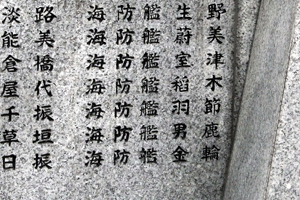 野美津木節鹿輪
生蔚室稲羽男金
艦艦艦艦艦艦艦
防防防防防防防
海海海海海海海
路美橋代振垣振
淡能倉屋千草日